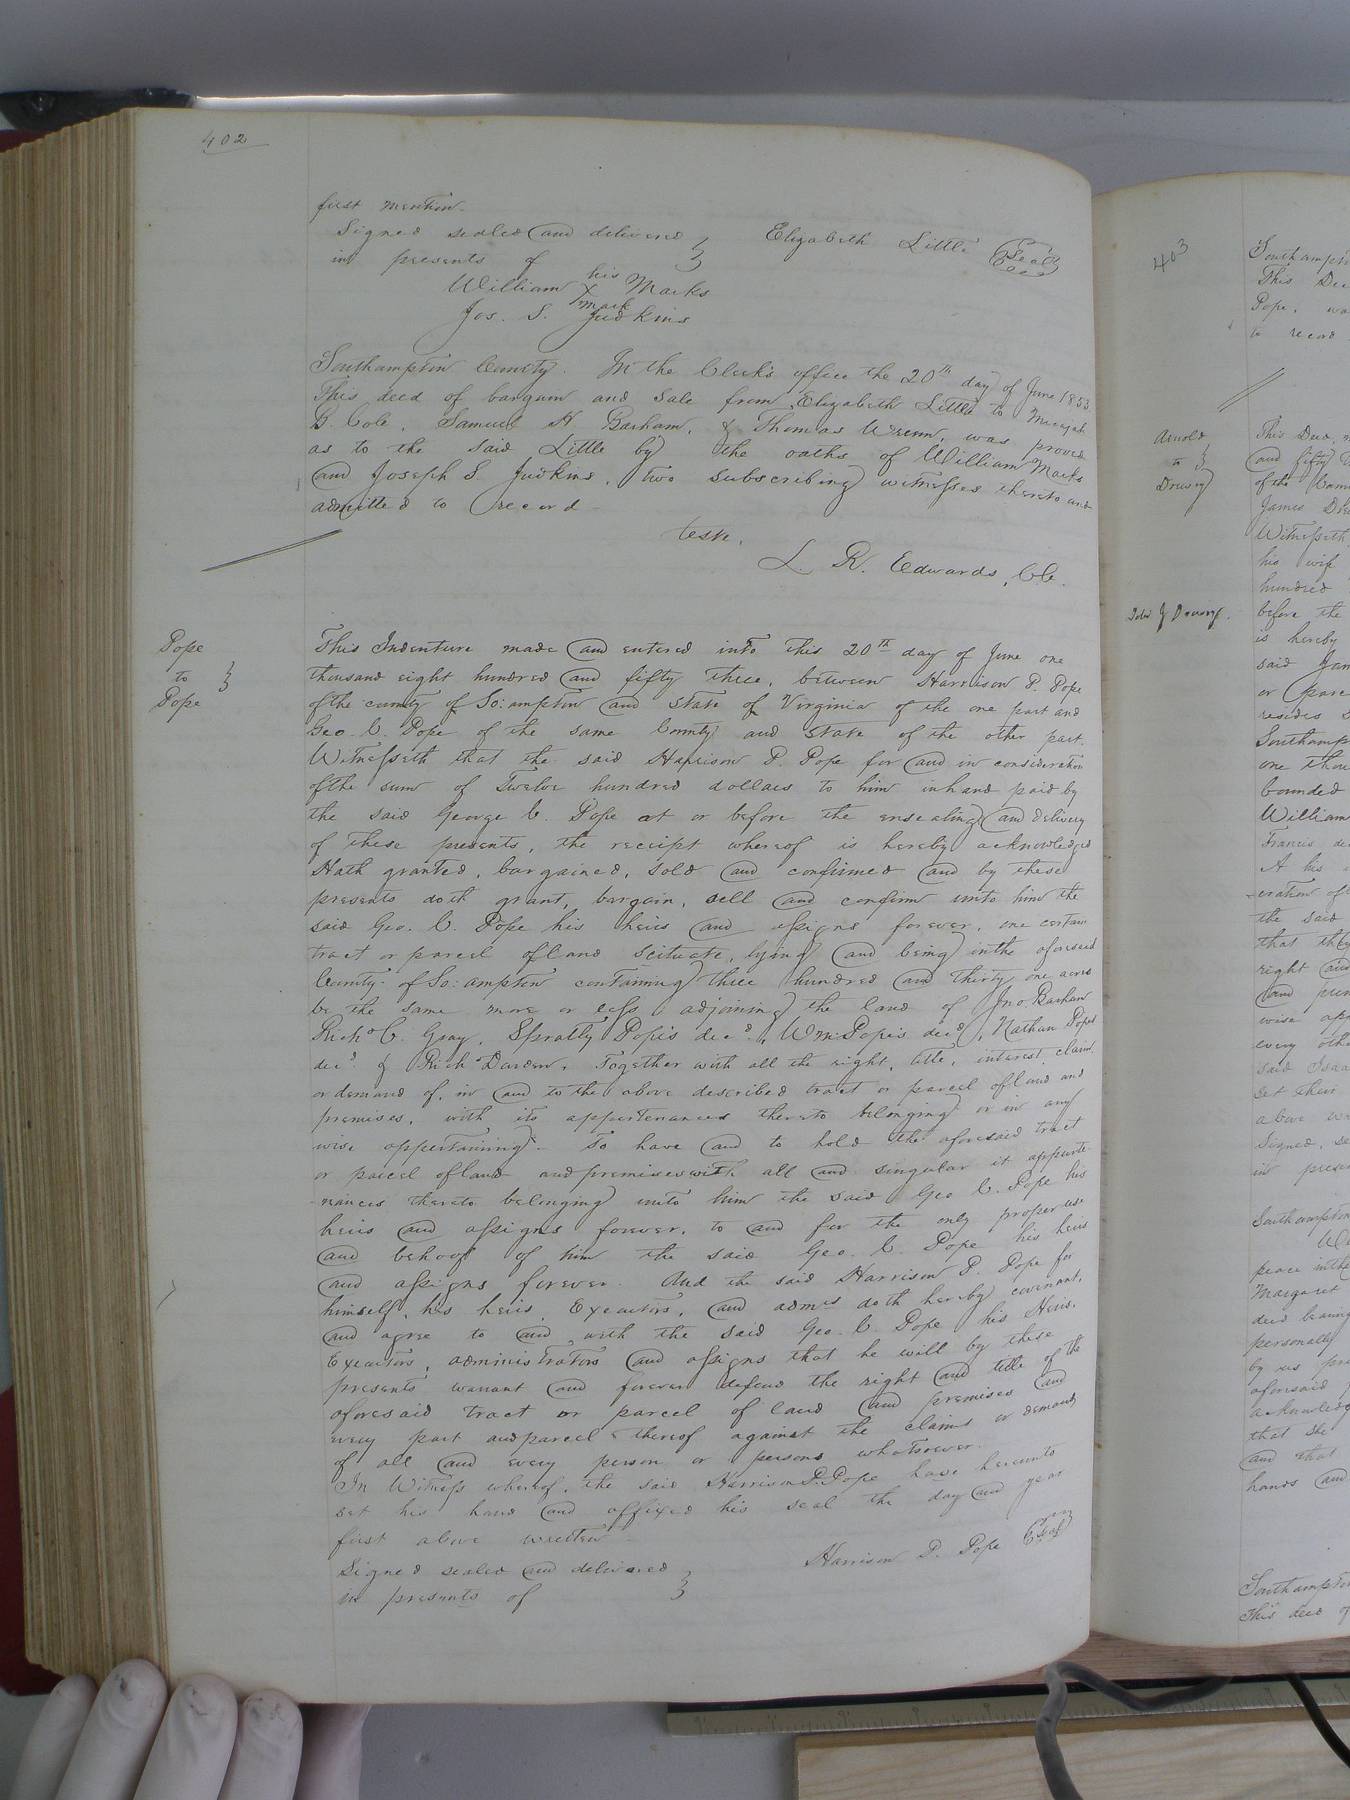 402
first mention.
Signed sealed and delivered } Elizabeth Little Seal
in presents of
his
William X Marks
mark
Jos. S. Judkins
Southampton County. In the Clerk's office the 20th day of June 1853
This deed of bargain and Sale from Elizabeth Little to Micajah
B. Cole, Samuel H. Barham, & Thomas Wrenn, was proved
as to the said Little by the oaths of William Marks
and Joseph S. Judkins, two subscribing witnesses thereto and
admitted to record
Teste.
L. R. Edwards, Clk.
Pope
to }
Pope
This Indenture made and entered into this 20th day of June one
thousand eight hundred and fifty three, between Harrison P. Pope
of the county of So:ampton and State of Virginia of the one part and
Geo. C. Pope of the same County and State of the other part.
Witnesseth that the said Harrison P. Pope for and in consideration
of the sum of Twelve hundred dollars to him in hand paid by
the said George C. Pope at or before the ensealing and delivery
of these presents, the receipt whereof is hereby acknowledged
Hath granted, bargained, sold and confirmed and by these
presents doth grant, bargain, sell and confirm unto him the
said Geo. C. Pope his heirs and assigns forever, one certain
tract or parcel of land scituate, lying and being in the aforesaid
County of So:ampton containing three hundred and thirty one acres
be the same more or less adjoining the land of Jno. Barham
Richd C. Gray, Spratly Pope's decd., Wm. Pope's decd, Nathan Popes
decd. & Rich Darden. Together with all the right, title, interest, claim
or demand of, in and to the above described tract or parcel of land and
premises, with its appertenances thereto belonging or in any
wise appertaining. To have and to hold the aforesaid tract
or parcel of land and premises with all and singular it apperte-
nances thereto belonging unto him the said Geo C. Pope his
heirs and assigns forever, to and for the only proper use
and behoof of him the said Geo. C. Pope his heirs
and assigns forever. And the said Harrison P. Pope for
himself, his heirs, Executors, and admrs doth hereby covenant,
and agree to and with the said Geo. C. Pope his Heirs,
Executors, administrators and assigns that he will by these
presents warrant and forever defend the right and title of the
aforesaid tract or parcel of land and premises and
every part and parcel thereof against the claims or demands
of all and every person or persons whatsoever.
In Witness whereof, the said Harrison P. Pope have hereunto
set his hand and affixed his seal the day and year
first above written
Signed sealed and delivered } Harrison P. Pope Seal
in presents of
403
Southampton
This Dee
Pope, wa
to record
Arnold
to }
Drewry
This Deed, m
and fifty
of the
James Dre
Witnesseth
his wife
hundred
before the
is hereby
said Jam
or parce
resides
Southamp
one thou
bounded
William
Francis
A his
eration of
the said
that they
right and
and
wise app
every oth
said Isaa
set their
above wr
Signed, se
in prese
Southampton
peace in the
Margaret
deed bearing
personally
by us
aforesaid
acknowledg
that she
and that
hands and
Southampton
This deed of